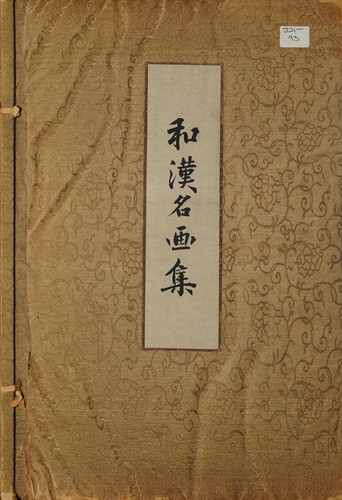 和漢名画集
J21-
93